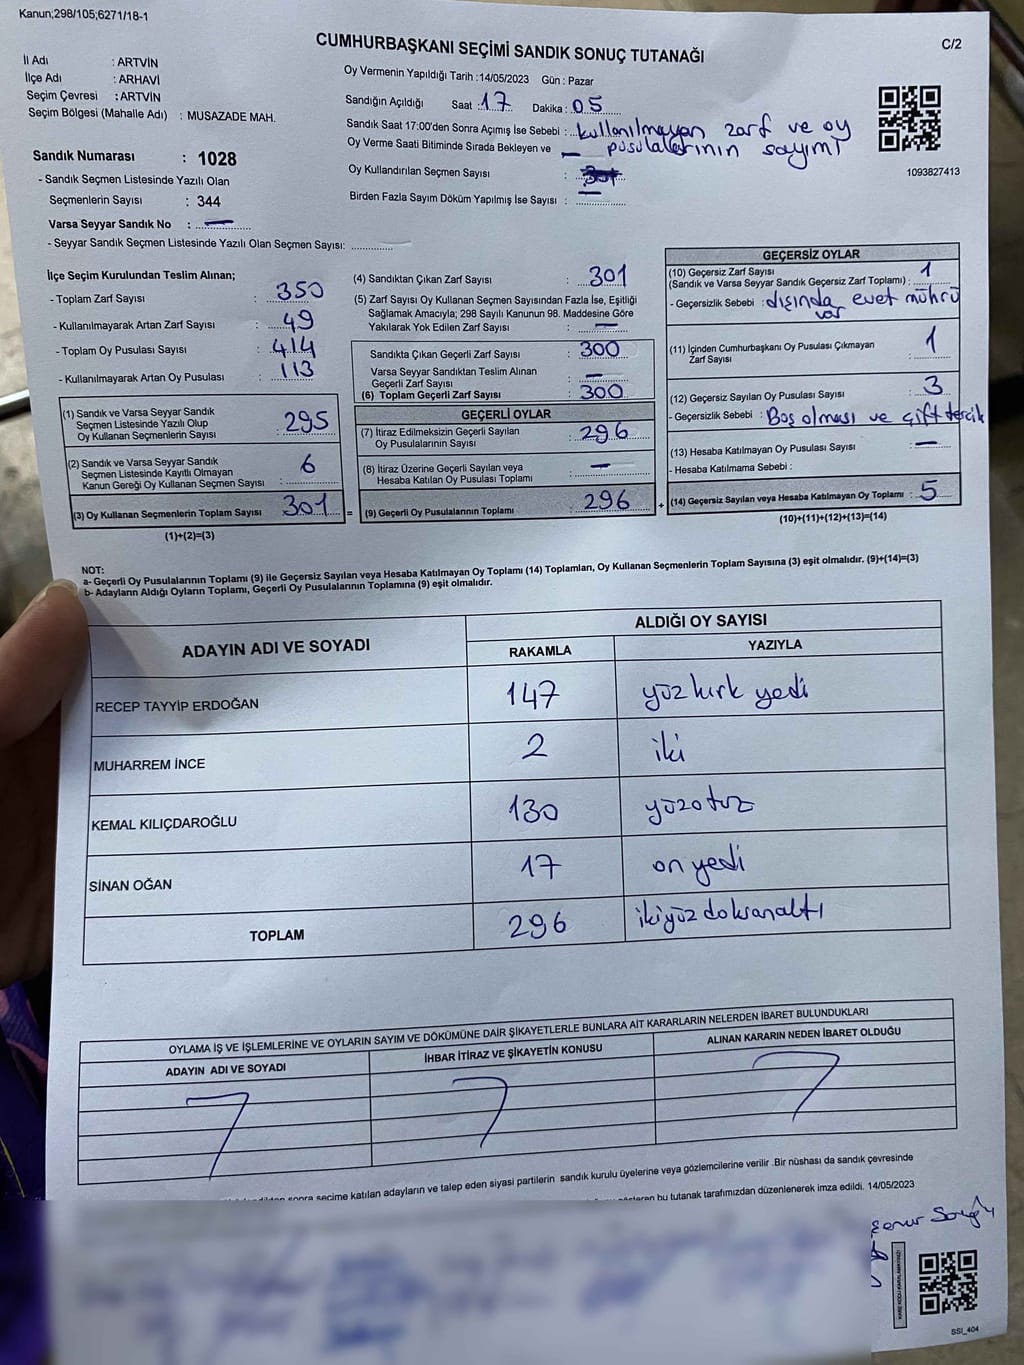 Kanun;298/105;6271/18-1
C/2
CUMHURBAŞKANI SEÇİMİ SANDIK SONUÇ TUTANAĞI
İl Adı : ARTVİN
İlçe Adı : ARHAVİ
Seçim Çevresi : ARTVİN
Seçim Bölgesi (Mahalle Adı) : MUSAZADE MAH.
Sandık Numarası : 1028
- Sandık Seçmen Listesinde Yazılı Olan
Seçmenlerin Sayısı : 344
Varsa Seyyar Sandık No : —
- Seyyar Sandık Seçmen Listesinde Yazılı Olan Seçmen Sayısı:
Oy Vermenin Yapıldığı Tarih :14/05/2023 Gün : Pazar
Sandığın Açıldığı Saat : 17 Dakika : 05
Sandık Saat 17:00'den Sonra Açımış İse Sebebi : kullanılmayan zarf ve oy
pusulalarının sayımı
Oy Verme Saati Bitiminde Sırada Bekleyen ve —
Oy Kullandırılan Seçmen Sayısı :
Birden Fazla Sayım Döküm Yapılmış İse Sayısı : —
1093827413
İlçe Seçim Kurulundan Teslim Alınan;
- Toplam Zarf Sayısı : 350
- Kullanılmayarak Artan Zarf Sayısı : 49
- Toplam Oy Pusulası Sayısı : 414
- Kullanılmayarak Artan Oy Pusulası : 113
(1) Sandık ve Varsa Seyyar Sandık
Seçmen Listesinde Yazılı Olup
Oy Kullanan Seçmenlerin Sayısı : 295
(2) Sandık ve Varsa Seyyar Sandık
Seçmen Listesinde Kayıtlı Olmayan
Kanun Gereği Oy Kullanan Seçmen Sayısı : 6
(3) Oy Kullanan Seçmenlerin Toplam Sayısı 301 =
(1)+(2)=(3)
(4) Sandıktan Çıkan Zarf Sayısı : 301
(5) Zarf Sayısı Oy Kullanan Seçmen Sayısından Fazla İse, Eşitliği
Sağlamak Amacıyla; 298 Sayılı Kanunun 98. Maddesine Göre
Yakılarak Yok Edilen Zarf Sayısı : —
Sandıkta Çıkan Geçerli Zarf Sayısı : 300
Varsa Seyyar Sandıktan Teslim Alınan
Geçerli Zarf Sayısı : —
(6) Toplam Geçerli Zarf Sayısı : 300
GEÇERLİ OYLAR
(7) İtiraz Edilmeksizin Geçerli Sayılan
Oy Pusulalarının Sayısı : 296
(8) İtiraz Üzerine Geçerli Sayılan veya
Hesaba Katılan Oy Pusulası Toplamı : —
(9) Geçerli Oy Pusulalarının Toplamı : 296 +
GEÇERSİZ OYLAR
(10) Geçersiz Zarf Sayısı
(Sandık ve Varsa Seyyar Sandık Geçersiz Zarf Toplamı) : 1
- Geçersizlik Sebebi : dışında evet mührü
var
(11) İçinden Cumhurbaşkanı Oy Pusulası Çıkmayan
Zarf Sayısı : 1
(12) Geçersiz Sayılan Oy Pusulası Sayısı : 3
- Geçersizlik Sebebi : Boş olması ve çift tercik
(13) Hesaba Katılmayan Oy Pusulası Sayısı : —
- Hesaba Katılmama Sebebi :
(14) Geçersiz Sayılan veya Hesaba Katılmayan Oy Toplamı : 5
(10)+(11)+(12)+(13)=(14)
NOT:
a- Geçerli Oy Pusulalarının Toplamı (9) ile Geçersiz Sayılan veya Hesaba Katılmayan Oy Toplamı (14) Toplamları, Oy Kullanan Seçmenlerin Toplam Sayısına (3) eşit olmalıdır. (9)+(14)=(3)
b- Adayların Aldığı Oyların Toplamı, Geçerli Oy Pusulalarının Toplamına (9) eşit olmalıdır.
ADAYIN ADI VE SOYADI
ALDIĞI OY SAYISI
RAKAMLA YAZIYLA
RECEP TAYYİP ERDOĞAN 147 yüz kırk yedi
MUHARREM İNCE 2 iki
KEMAL KILIÇDAROĞLU 130 yüzotuz
SİNAN OĞAN 17 on yedi
TOPLAM 296 ikiyüz doksanaltı
OYLAMA İŞ VE İŞLEMLERİNE VE OYLARIN SAYIM VE DÖKÜMÜNE DAİR ŞİKAYETLERLE BUNLARA AİT KARARLARIN NELERDEN İBARET BULUNDUKLARI
ADAYIN ADI VE SOYADI İHBAR İTİRAZ VE ŞİKAYETİN KONUSU ALINAN KARARIN NEDEN İBARET OLDUĞU
sonra seçime katılan adayların ve talep eden siyasi partilerin sandık kurulu üyelerine veya gözlemcilerine verilir .Bir nüshası da sandık çevresinde
bu tutanak tarafımızdan düzenlenerek imza edildi. 14/05/2023
SSI_404